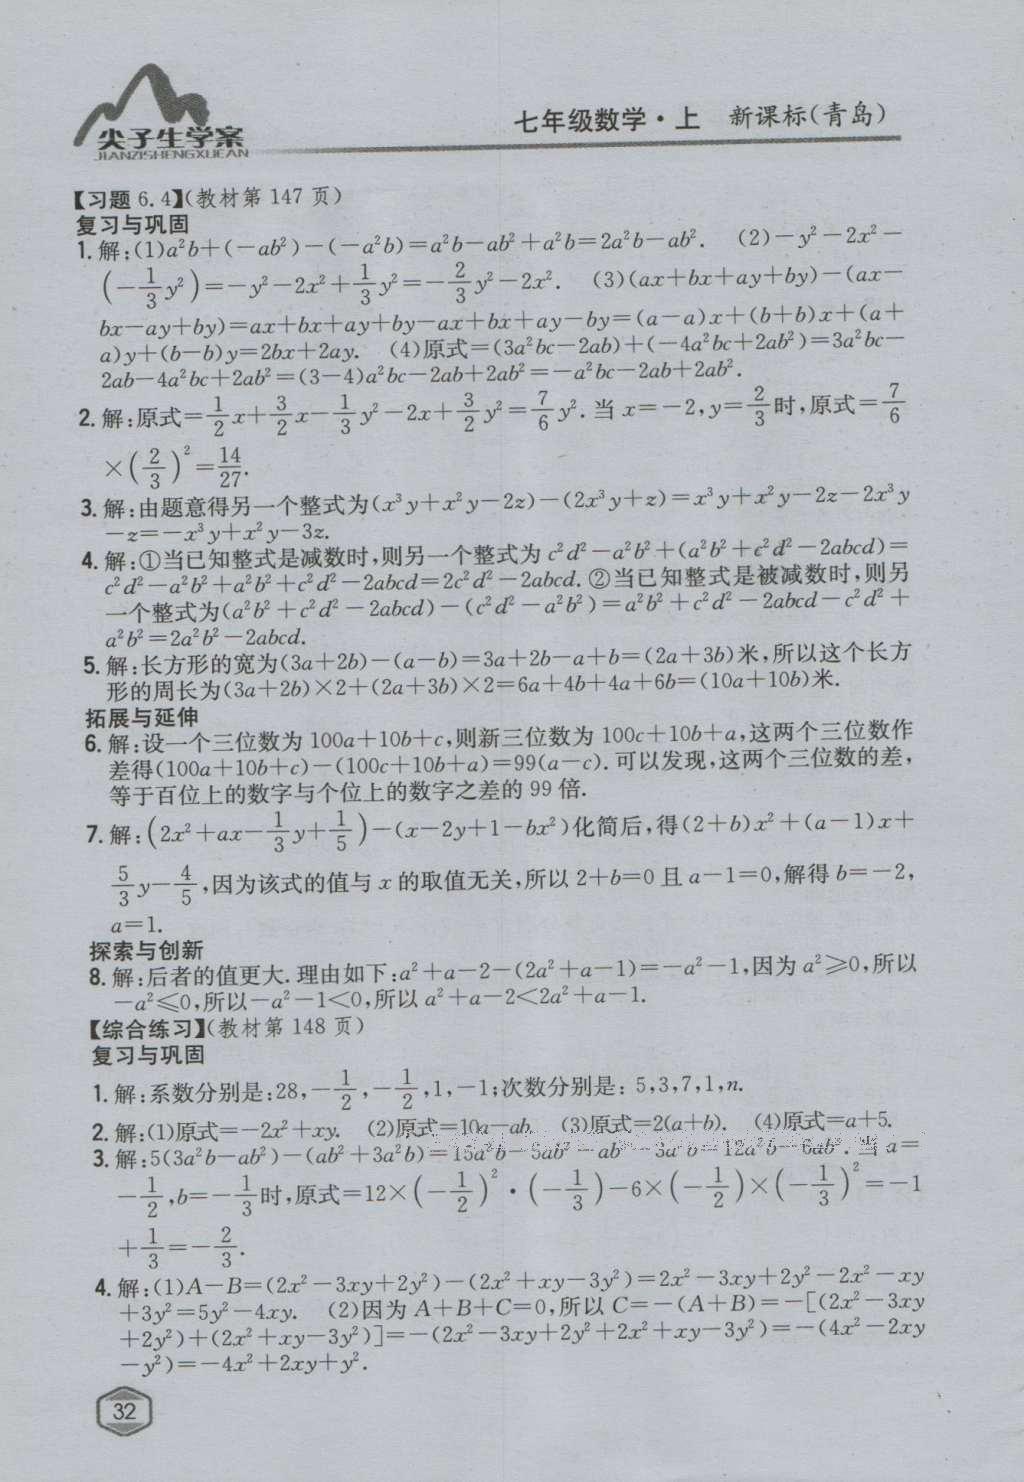 尖子生学案
JIANZISHENGXUEAN
七年级数学·上 新课标(青岛)
【习题 6.4】(教材第 147 页)
复习与巩固
1. 解:(1)a²b+(-ab²)-(-a²b)=a²b-ab²+a²b=2a²b-ab². (2)-y²-2x²-
(-1/3 y²)=-y²-2x²+1/3 y²=-2/3 y²-2x². (3)(ax+bx+ay+by)-(ax-
bx-ay+by)=ax+bx+ay+by-ax+bx+ay-by=(a-a)x+(b+b)x+(a+
a)y+(b-b)y=2bx+2ay. (4)原式=(3a²bc-2ab)+(-4a²bc+2ab²)=3a²bc-
2ab-4a²bc+2ab²=(3-4)a²bc-2ab+2ab²=-a²bc-2ab+2ab².
2. 解:原式=1/2 x+3/2 x-1/3 y²-2x+3/2 y²=7/6 y². 当 x=-2,y=2/3时,原式=7/6
×(2/3)²=14/27.
3. 解:由题意得另一个整式为(x³y+x²y-2z)-(2x³y+z)=x³y+x²y-2z-2x³y
-z=-x³y+x²y-3z.
4. 解:①当已知整式是减数时,则另一个整式为 c²d²-a²b²+(a²b²+c²d²-2abcd)=
c²d²-a²b²+a²b²+c²d²-2abcd=2c²d²-2abcd. ②当已知整式是被减数时,则另
一个整式为(a²b²+c²d²-2abcd)-(c²d²-a²b²)=a²b²+c²d²-2abcd-c²d²+
a²b²=2a²b²-2abcd.
5. 解:长方形的宽为(3a+2b)-(a-b)=3a+2b-a+b=(2a+3b)米,所以这个长方
形的周长为(3a+2b)×2+(2a+3b)×2=6a+4b+4a+6b=(10a+10b)米.
拓展与延伸
6. 解:设一个三位数为 100a+10b+c,则新三位数为 100c+10b+a,这两个三位数作
差得(100a+10b+c)-(100c+10b+a)=99(a-c). 可以发现,这两个三位数的差,
等于百位上的数字与个位上的数字之差的 99 倍.
7. 解:(2x²+ax-1/3 y+1/5)-(x-2y+1-bx²)化简后,得(2+b)x²+(a-1)x+
5/3 y-4/5,因为该式的值与 x 的取值无关,所以 2+b=0 且 a-1=0,解得 b=-2,
a=1.
探索与创新
8. 解:后者的值更大. 理由如下:a²+a-2-(2a²+a-1)=-a²-1,因为 a²≥0,所以
-a²≤0,所以-a²-1<0,所以 a²+a-2<2a²+a-1.
【综合练习】(教材第 148 页)
复习与巩固
1. 解:系数分别是:28,-1/2,-1/2,1,-1;次数分别是: 5,3,7,1,n.
2. 解:(1)原式=-2x²+xy. (2)原式=10a-ab. (3)原式=2(a+b). (4)原式=a+5.
3. 解:5(3a²b-ab²)-(ab²+3a²b)=15a²b-5ab²-ab²-3a²b=12a²b-6ab². 当 a=
-1/2,b=-1/3时,原式=12×(-1/2)²·(-1/3)-6×(-1/2)×(-1/3)²=-1
+1/3=-2/3.
4. 解:(1)A-B=(2x²-3xy+2y²)-(2x²+xy-3y²)=2x²-3xy+2y²-2x²-xy
+3y²=5y²-4xy. (2)因为 A+B+C=0,所以 C=-(A+B)=-[(2x²-3xy
+2y²)+(2x²+xy-3y²)]=-(2x²-3xy+2y²+2x²+xy-3y²)=-(4x²-2xy
-y²)=-4x²+2xy+y².
32